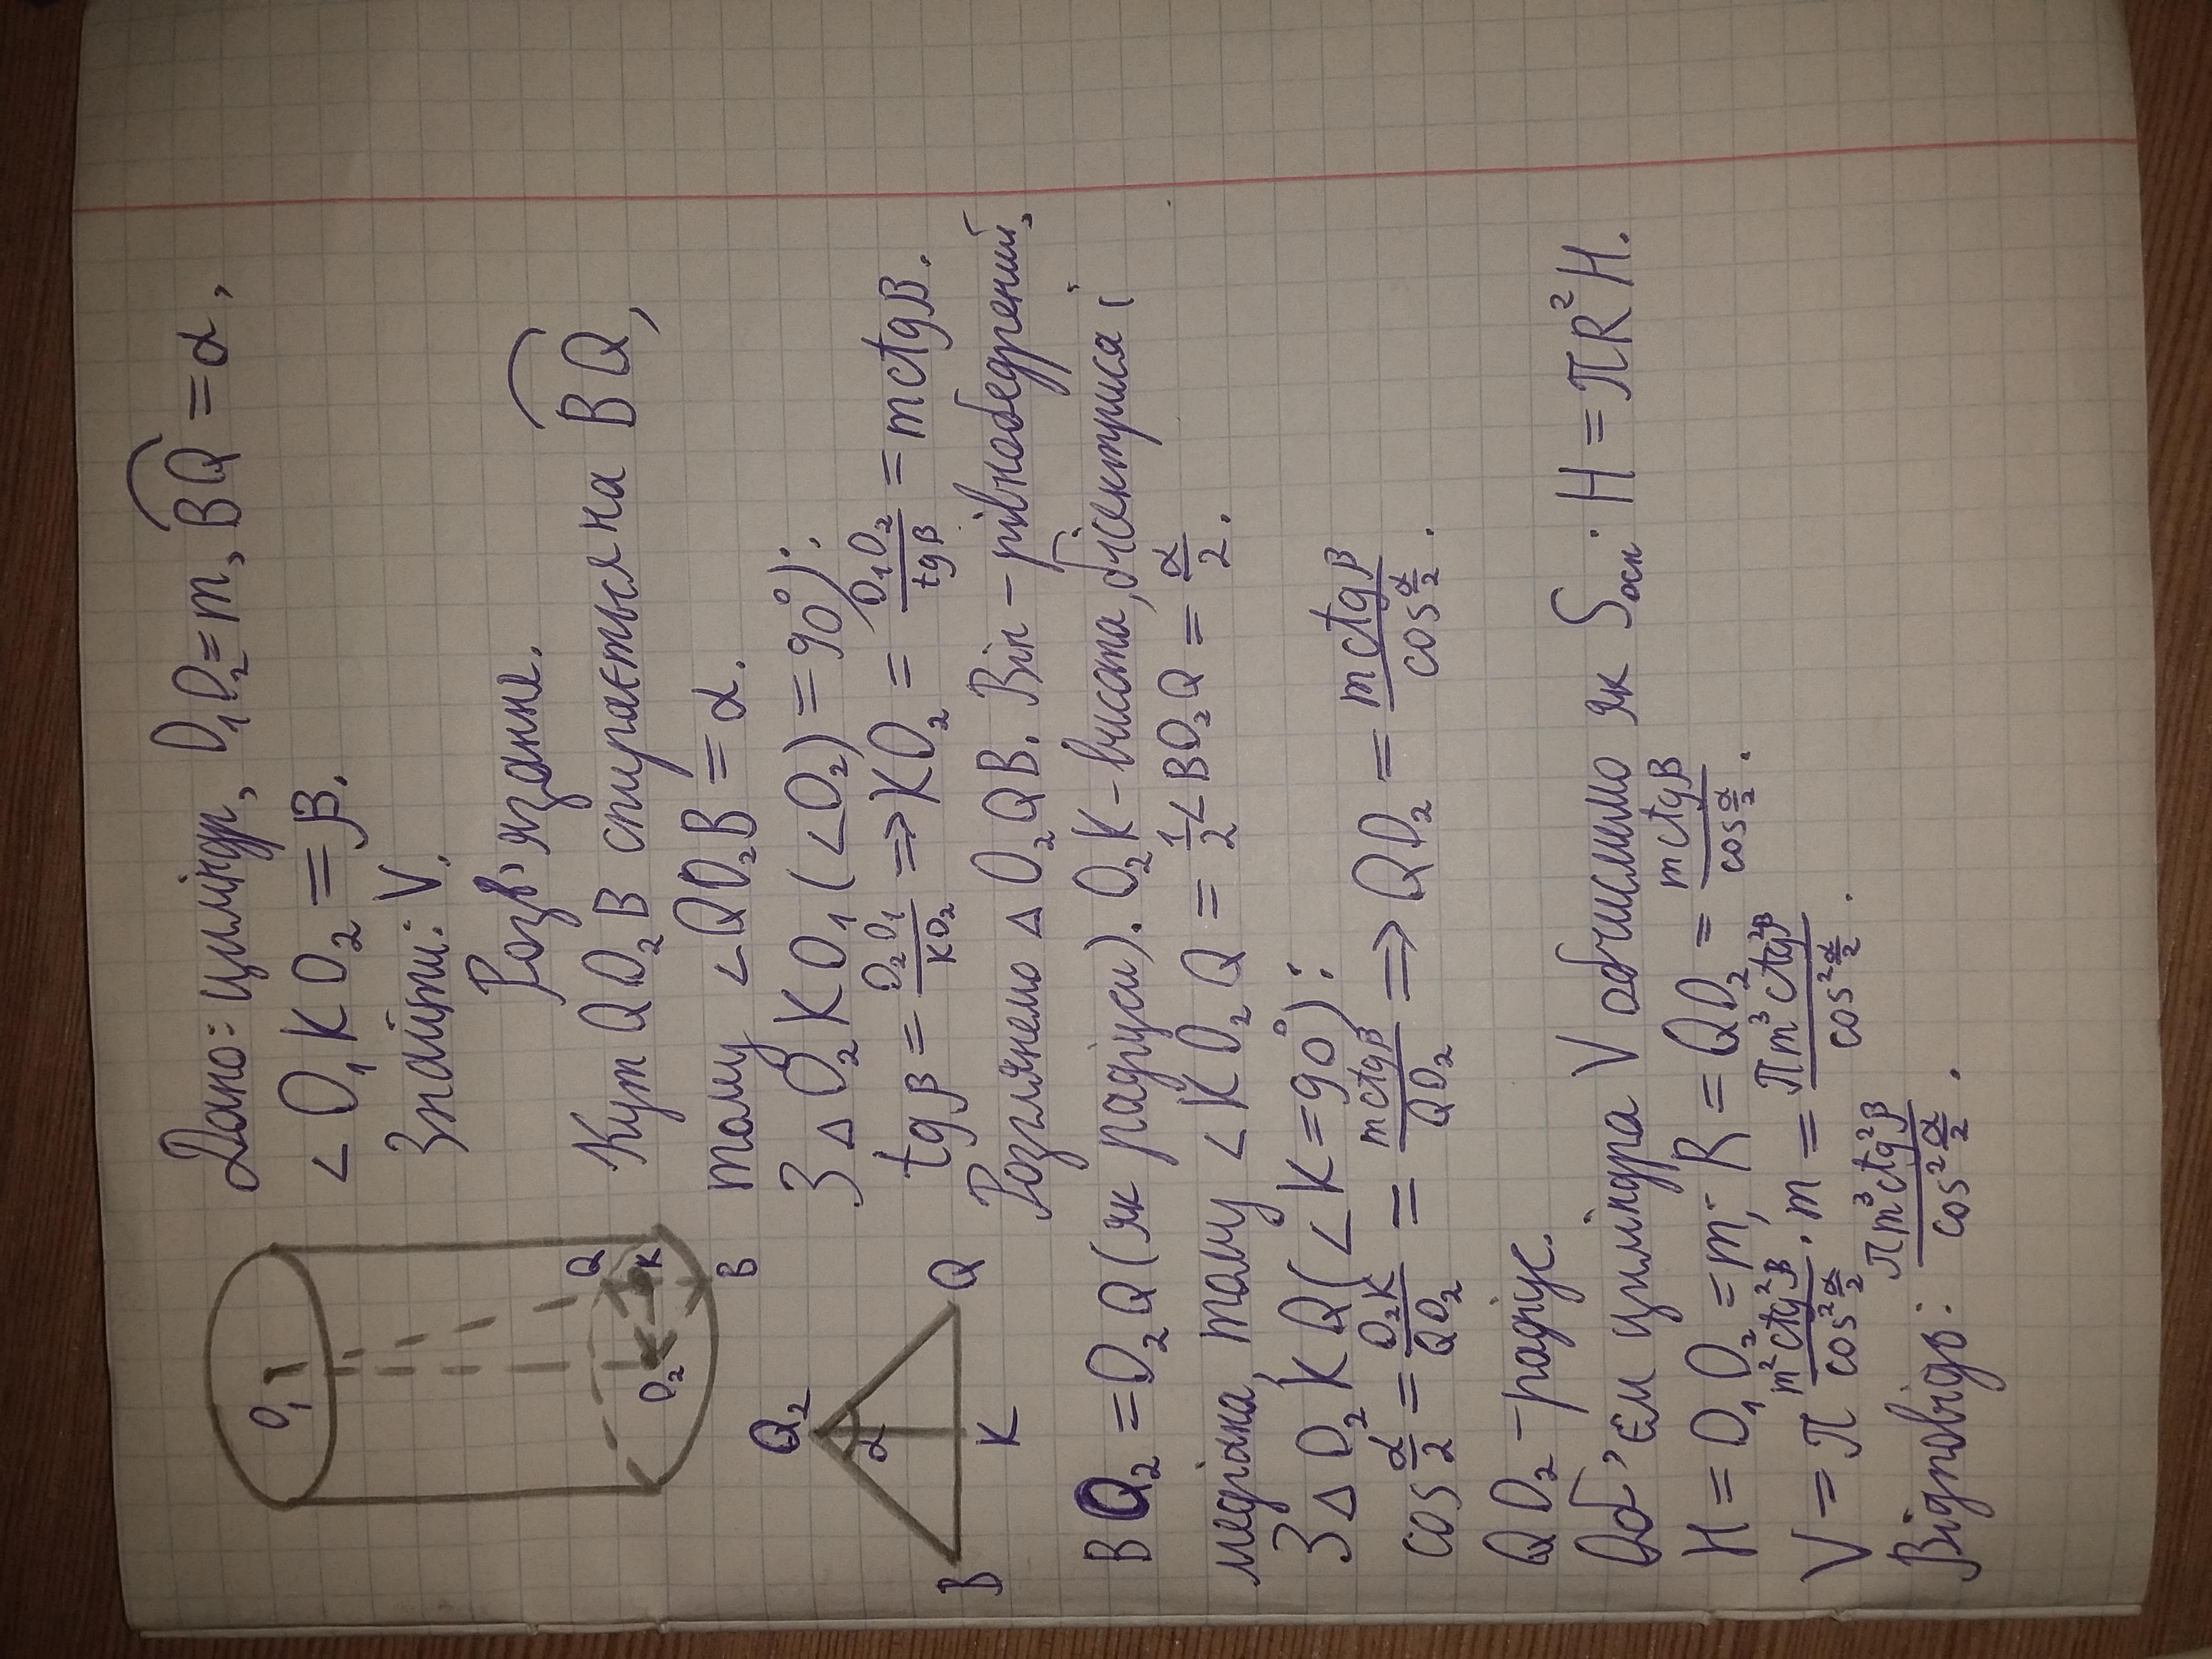 Дано: циліндр, O₁O₂=m, ⌒BQ=α,
∠O₁KO₂=β.
Знайти: V.
Розв'язання.
Кут QO₂B спирається на ⌒BQ,
тому ∠QO₂B=α.
З △O₂KO₁(∠O₂)=90°):
tgβ=O₂O₁/KO₂ ⇒ KO₂=O₁O₂/tgβ=mctgβ.
Розглянемо △O₂QB. Він – рівнобедрений,
BO₂=O₂Q(як радіуси). O₂K – висота, бісектриса і
медіана, тому ∠KO₂Q=1/2∠BO₂Q=α/2.
З △O₂KQ(∠K=90°):
cos α/2=O₂K/QO₂=mctgβ/QO₂ ⇒ QO₂=mctgβ/cos α/2.
QO₂ – радіус.
Об'єм циліндра V обчислимо як Sосн·H=πR²H.
H=O₁O₂=m; R=QO₂=mctgβ/cos α/2.
V=π m²ctg²β/cos² α/2·m=πm³ctg²β/cos² α/2.
Відповідь: πm³ctg²β/cos² α/2.
O₁
Q
K
O₂
B
O₂
α
B
K
Q